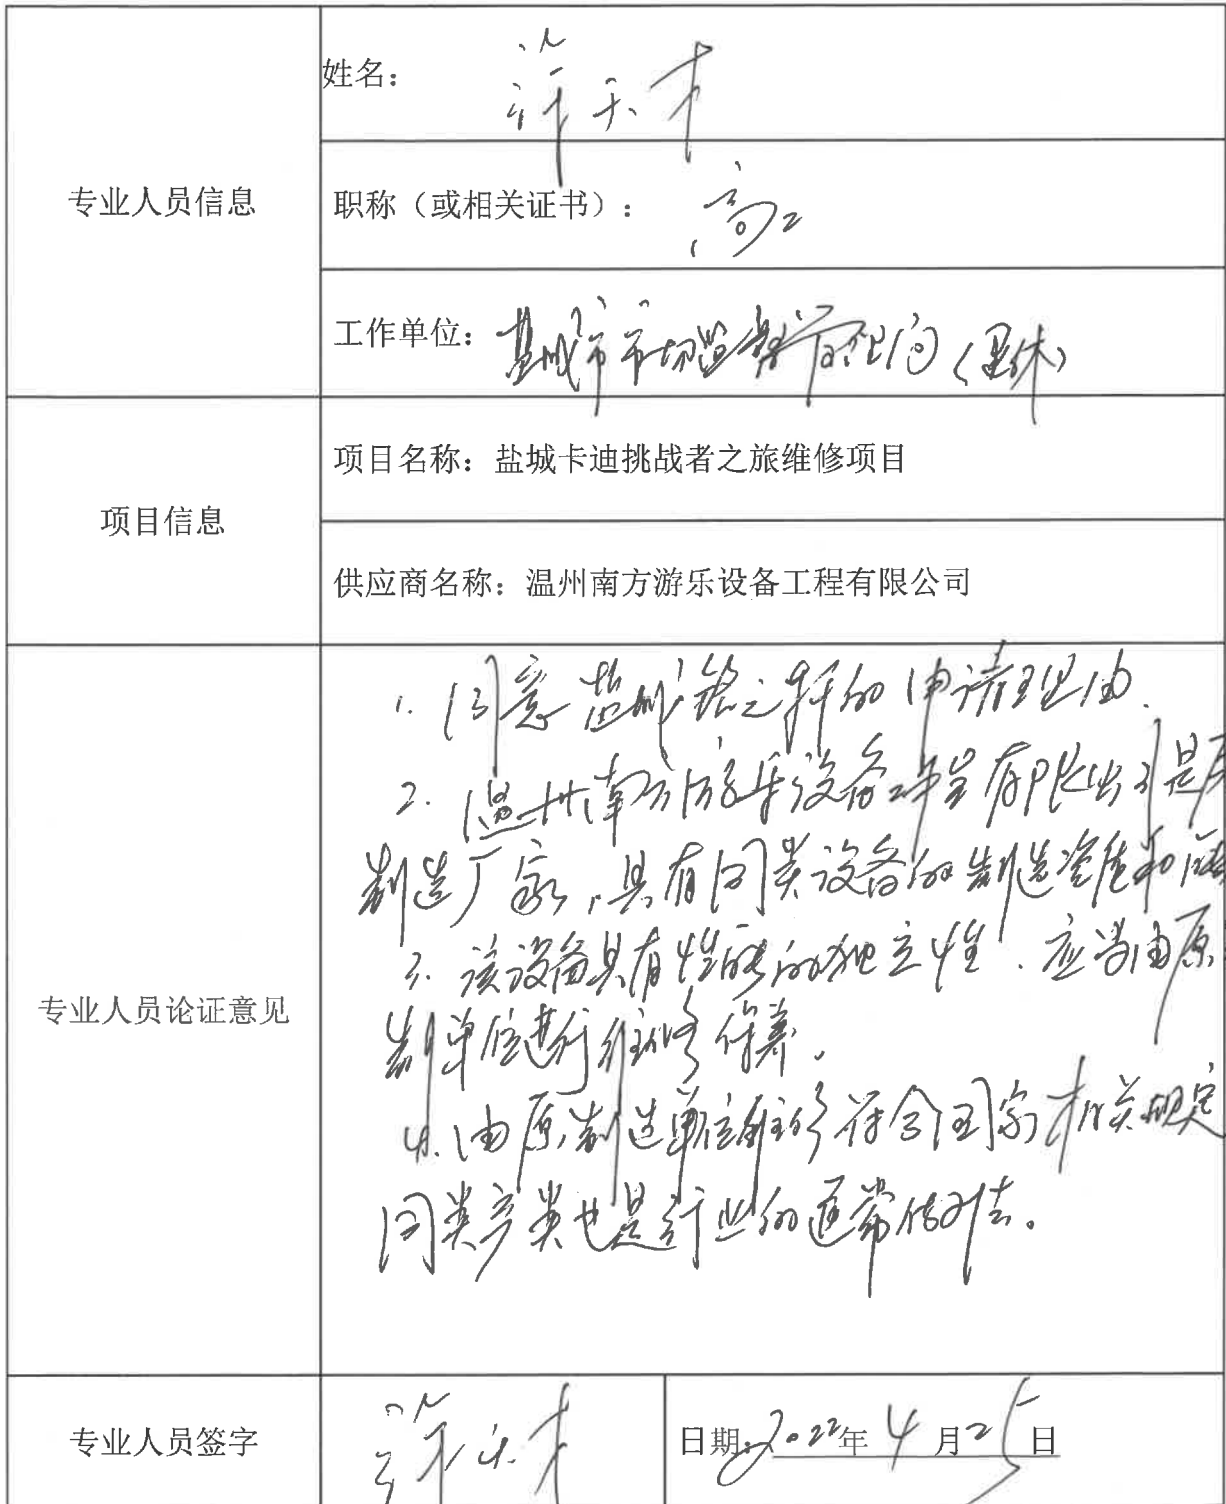 姓名：
专业人员信息
职称（或相关证书）：高工
工作单位：盐城市市场监督管理局（退休）
项目名称：盐城卡迪挑战者之旅维修项目
项目信息
供应商名称：温州南方游乐设备工程有限公司
1. 同意盐城的申请理由.
2. 温州南方游乐设备工程有限公司是原
制造厂家，具有同类设备的制造资质和
3. 该设备具有性能的独立性. 应当由原
专业人员论证意见
制单位进行维修保养。
4. 由原制造单位维修符合国家相关规定
同类产类也是行业的通常做法。
专业人员签字
日期：2022年4月25日